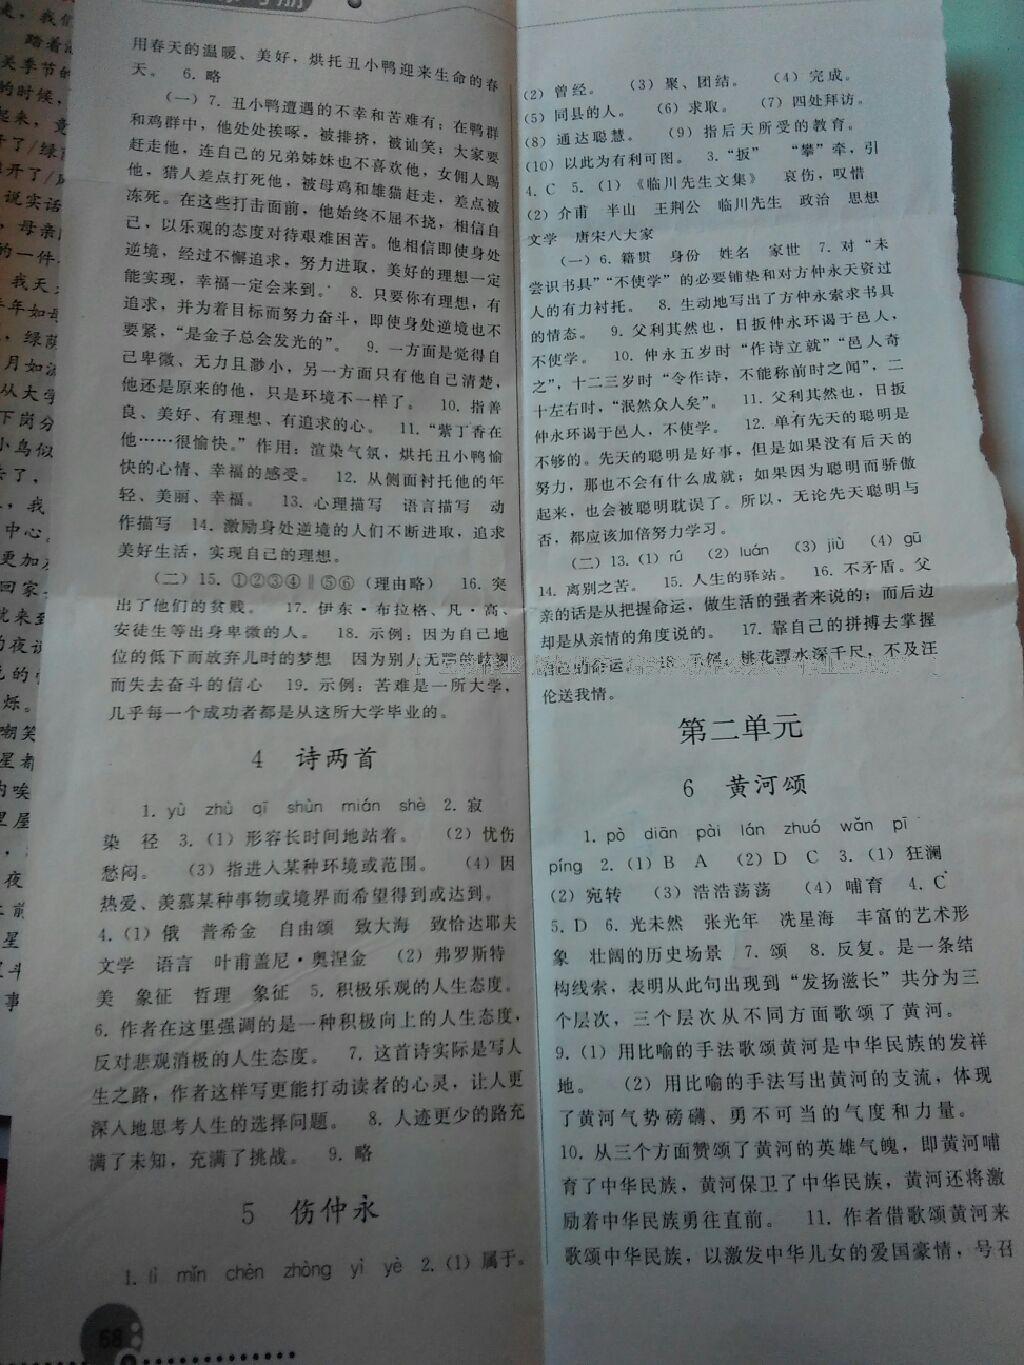 用春天的温暖、美好，烘托丑小鸭迎来生命的春
天。 6. 略
（一）7. 丑小鸭遭遇的不幸和苦难有：在鸭群
和鸡群中，他处处挨啄，被排挤，被讪笑；大家要
赶走他，连自己的兄弟姊妹也不喜欢他，女佣人踢
他，猎人差点打死他，被母鸡和雄猫赶走，差点被
冻死。在这些打击面前，他始终不屈不挠，相信自
己，以乐观的态度对待艰难困苦。他相信即使身处
逆境，经过不懈追求，努力进取，美好的理想一定
能实现，幸福一定会来到。 8. 只要你有理想，有
追求，并为着目标而努力奋斗，即使身处逆境也不
要紧，“是金子总会发光的”。 9. 一方面是觉得自
己卑微、无力且渺小，另一方面只有他自己清楚，
他还是原来的他，只是环境不一样了。 10. 指善
良、美好、有理想、有追求的心。 11. “紫丁香在
他……很愉快。”作用：渲染气氛，烘托丑小鸭愉
快的心情、幸福的感受。 12. 从侧面衬托他的年
轻、美丽、幸福。 13. 心理描写 语言描写 动
作描写 14. 激励身处逆境的人们不断进取，追求
美好生活，实现自己的理想。
（二）15. ①②③④‖⑤⑥（理由略） 16. 突
出了他们的贫贱。 17. 伊东·布拉格、凡·高、
安徒生等出身卑微的人。 18. 示例：因为自己地
位的低下而放弃儿时的梦想 因为别人无端的歧视
而失去奋斗的信心 19. 示例：苦难是一所大学，
几乎每一个成功者都是从这所大学毕业的。
4 诗两首
1. yù zhù qī shùn mián shè 2. 寂
染 径 3.（1）形容长时间地站着。 （2）忧伤
愁闷。 （3）指进入某种环境或范围。 （4）因
热爱、羡慕某种事物或境界而希望得到或达到。
4.（1）俄 普希金 自由颂 致大海 致恰达耶夫
文学 语言 叶甫盖尼·奥涅金 （2）弗罗斯特
美 象征 哲理 象征 5. 积极乐观的人生态度。
6. 作者在这里强调的是一种积极向上的人生态度，
反对悲观消极的人生态度。 7. 这首诗实际是写人
生之路，作者这样写更能打动读者的心灵，让人更
深入地思考人生的选择问题。 8. 人迹更少的路充
满了未知，充满了挑战。 9. 略
5 伤仲永
1. lì mǐn chèn zhòng yì yè 2.（1）属于。
68
（2）曾经。 （3）聚、团结。 （4）完成。
（5）同县的人。 （6）求取。 （7）四处拜访。
（8）通达聪慧。 （9）指后天所受的教育。
（10）以此为有利可图。 3. “扳” “攀”牵，引
4. C 5.（1）《临川先生文集》 哀伤，叹惜
（2）介甫 半山 王荆公 临川先生 政治 思想
文学 唐宋八大家
（一）6. 籍贯 身份 姓名 家世 7. 对“未
尝识书具”“不使学”的必要铺垫和对方仲永天资过
人的有力衬托。 8. 生动地写出了方仲永索求书具
的情态。 9. 父利其然也，日扳仲永环谒于邑人，
不使学。 10. 仲永五岁时“作诗立就”“邑人奇
之”，十二三岁时“令作诗，不能称前时之闻”，二
十左右时，“泯然众人矣”。 11. 父利其然也，日扳
仲永环谒于邑人，不使学。 12. 单有先天的聪明是
不够的。先天的聪明是好事，但是如果没有后天的
努力，那也不会有什么成就；如果因为聪明而骄傲
起来，也会被聪明耽误了。所以，无论先天聪明与
否，都应该加倍努力学习。
（二）13.（1）rú （2）luán （3）jiù （4）gū
14. 离别之苦。 15. 人生的驿站。 16. 不矛盾。父
亲的话是从把握命运，做生活的强者来说的；而后边
却是从亲情的角度说的。 17. 靠自己的拼搏去掌握
自己的命运。 18. 示例：桃花潭水深千尺，不及汪
伦送我情。
第二单元
6 黄河颂
1. pò diān pài lán zhuó wǎn pī
píng 2.（1）B A （2）D C 3.（1）狂澜
（2）宛转 （3）浩浩荡荡 （4）哺育 4. C
5. D 6. 光未然 张光年 冼星海 丰富的艺术形
象 壮阔的历史场景 7. 颂 8. 反复。是一条结
构线索，表明从此句出现到“发扬滋长”共分为三
个层次，三个层次从不同方面歌颂了黄河。
9.（1）用比喻的手法歌颂黄河是中华民族的发祥
地。 （2）用比喻的手法写出黄河的支流，体现
了黄河气势磅礴、勇不可当的气度和力量。
10. 从三个方面赞颂了黄河的英雄气魄，即黄河哺
育了中华民族，黄河保卫了中华民族，黄河还将激
励着中华民族勇往直前。 11. 作者借歌颂黄河来
歌颂中华民族，以激发中华儿女的爱国豪情，号召